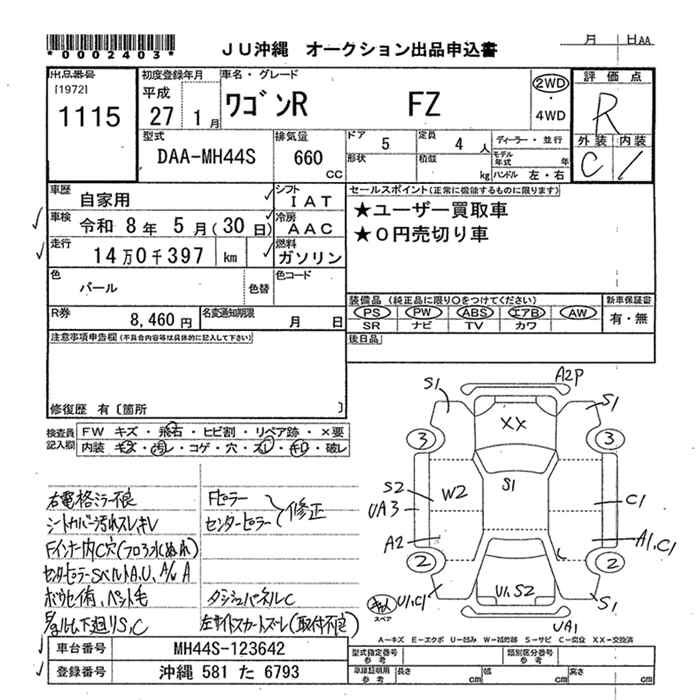 *0002403*
JU沖縄 オークション出品申込書
月 日AA
出品番号
[1972]
1115
初度登録年月
平成
27 1月
車名・グレード
ワゴンR FZ
2WD
・
4WD
評価点
R
外装 内装
C /
型式
DAA-MH44S
排気量
660
CC
ドア 5
定員 4 人
形状
積載 kg
ディーラー・並行
モデル年式 年
ハンドル 左・右
車歴 自家用
シフト IAT
車検 令和 8年 5月(30日)
冷房 AAC
走行 14万0千397 km
燃料 ガソリン
色 パール 色替
色コード
R券 8,460円
名変通知期限 月 日
セールスポイント(正常に機能するものに限ります)
★ユーザー買取車
★0円売切り車
装備品(純正品に限り○をつけてください)
新車保証書
PS PW ABS エアB AW
有・無
SR ナビ TV カワ
後日品
注意事項申告欄(不具合内容等は具体的に記入して下さい)
修復歴 有〔箇所 〕
検査員記入欄
FW キズ・飛石・ヒビ割・リペア跡・×要
内装 キズ・汚レ・コゲ・穴・スレ・キレ・破レ
右電格ミラー不良
シートカバー汚れスレキレ
Fインナー内C穴(フロア水ぬれ)
センターピラーSベルトA.U、
ペット毛
下廻りS,C
Fピラー
センターピラー
修正
ダッシュパネルC
左サイドスカートズレ(取付不良)
A2P
S1
S1
XX
3
3
S1
S2
W2
UA3
C1
A2
A1,C1
2
2
U1,S2
U1,C1
S1
UA1
スペア
A－キズ E－エクボ U－凹み W－補修跡 S－サビ C－腐食 XX－交換済
車台番号 MH44S-123642
登録番号 沖縄 581 た 6793
型式指定番号
参考
類別区分番号
参考
車庫証明用
参考
長さ cm
幅 cm
高さ cm